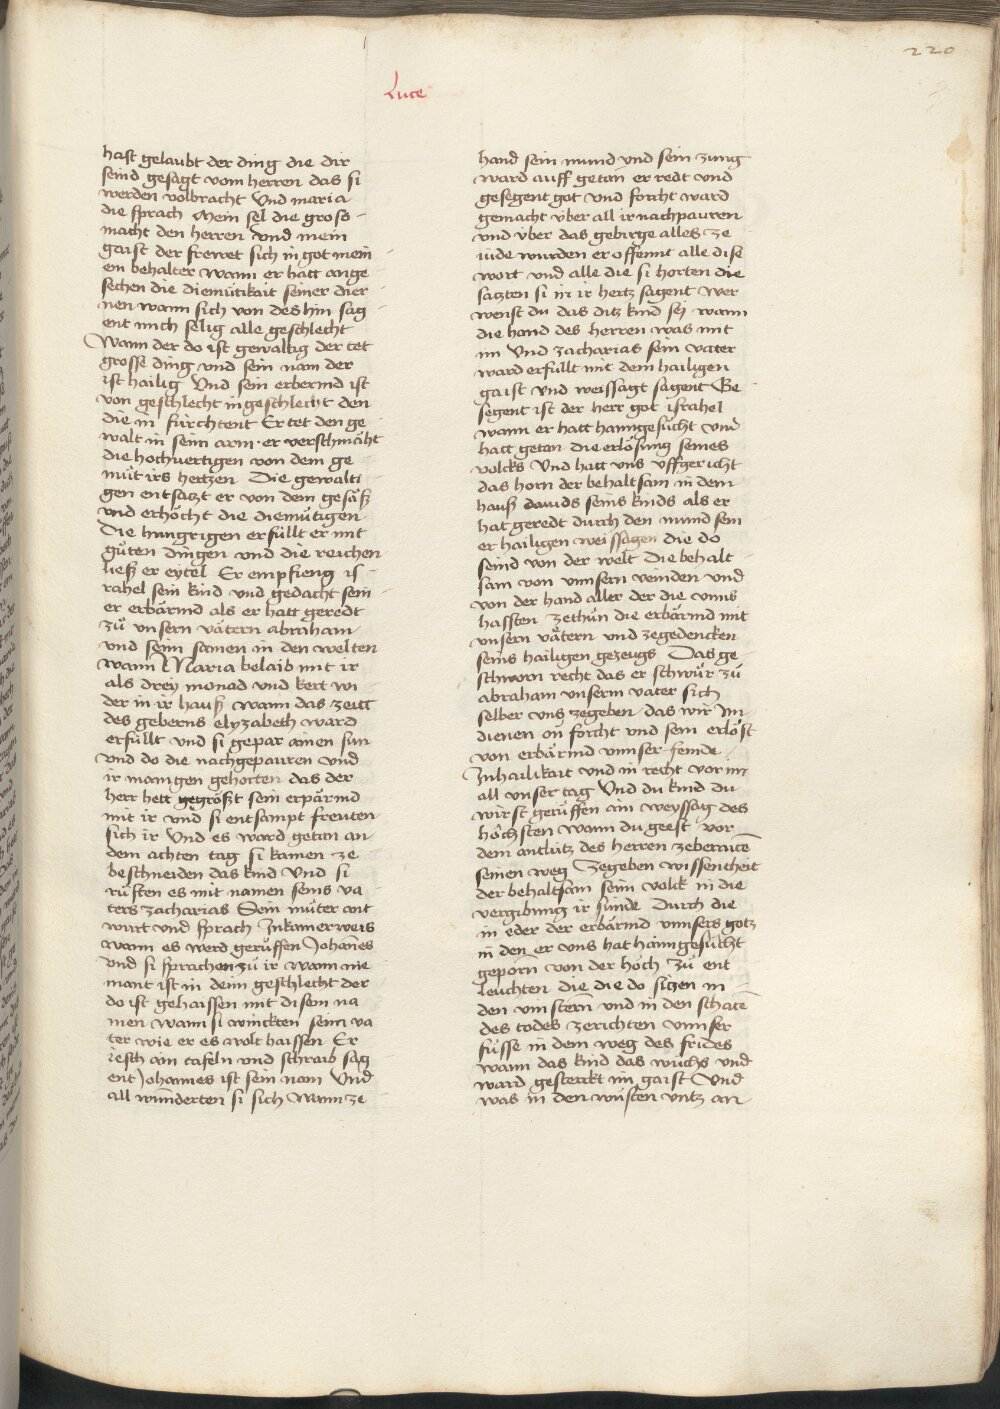 220
Luce
hast gelaubt der ding die dir
seind gesagt vom herren das si
werden volbracht Und maria
die sprach Mein sel die groso-
macht den herren und mein
gaist der frewet sich in got mein
en behalter wann er hatt ange-
sechen die diemütikait seiner dier-
nen wann sich von des hin sag-
ent mich selig alle geschlecht
Wann der do ist gewaltig der tet
grosse ding und sein nam der
ist hailig Und sein erbermd ist
von geschlecht in geschlecht den
die in fürchtent Er tet den ge
walt in seim arm · er verschmächt
die hochuertigen von dem ge
müt irs hertzen Die gewalti
gen entsatzt er von dem gesäß
und erhöcht die diemütigen
Die hungrigen erfüllt er mit
gůten dingen und die reichen
ließ er eytel Er empfieng is-
rahel sein kind und gedacht sein-
er erbärmd als er hatt geredt
zů unsern vätern abraham
und seim samen in den welten
wann Maria belaib mit ir
als drey monad und kert wi-
der in ir hauß wann das zeitt
des geberns elyzabeth ward
erfüllt und si gepar ainen sun
und do die nachgepauren und
ir manigen gehorten das der
herr hett gegrößt sein erpärmd
mit ir und si entsampt freuten
sich ir Und es ward getan an
dem achten tag si kamen ze
beschneiden das kind Und si
růfften es mit namen seins va-
ters zacharias Sein můter ant
wurt und sprach In kainerweis
wann es werd gerůffen Johanes
und si sprachen zů ir wann nie
mant ist in deim geschlecht der
do ist gehaissen mit disem na
men wann si winckten seim va
ter wie er es wolt haissen Er
iesch ain tafeln und schraib sag
ent Johannes ist sein nam Und
all wunderten si sich Wann ze
hand sein mund und sein zung
ward auff getan er redt und
gesegent got und forcht ward
gemacht über all ir nachpauren
und über das gebirge alles ze
iude wurden er offennt alle dise
wort und alle die si horten die
satzten si in ir hertz sagent wer
wenst du das ditz kind sej wann
die hand des herren was mit
im Und zacharias sein vater
ward erfüllt mit dem hailigen
gaist und weissagt sagent Ge
segent ist der herr got israhel
wann er hatt haimgesůcht und
hatt getan die erlösung seines
volcks Und hatt uns uffgericht
das horn der behaltsam in dem
hauß dauids seins kinds als er
hat geredt durch den mund sein
er hailigen weissagen die do
seind von der welt Die behalt-
sam von unnsern veinden und
von der hand aller der die unns
hassten Zethůn die erbärmd mit
unsern vätern und zegedencken
seins hailigen gezeugs Das ge-
schworn recht das er schwůr zů
abraham unserm vater sich
selber uns zegeben das wir Im
dienen on forcht und sein erlöst
von erbärmd unnser feinde
In hailikait und in recht vor im
all unser tag Und du kind du
wirst gerůffen ain weyssag des
höchsten wann du geest vor
dem antlütz des herren zeberaitē
seinen weg Zegeben wissentheit
der behaltsam seim volck in die
vergibung ir sünde Durch die
in eder der erbärmd unnsers gotz
in den er uns hat haimgesůcht
geporn von der höch Zů ent
leuchten die die do sitzen in
den vinstern und in den schatē
des todes zerichten unnser
füsse in dem weg des frides
wann das kind das wůchs und
ward gesterckt im gaist Und
was in den wüsten untz an